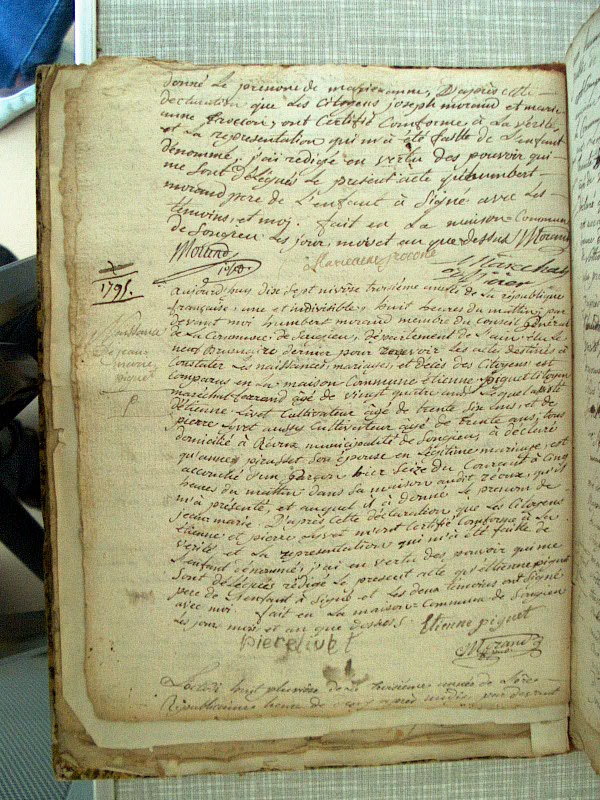 donné Le prenom de marieanne, D'après cette
declaration que Les Citoyens joseph morand et marie
anne favelon, ont Certifié Comforme à La Vérité,
et La representation qui m'a été faitte de L'enfant
Dénommé, j'ai rédigé en vertu des pouvoir qui
me sont délégués Le present acte qu'humbert
morand pere de L'enfant à Signé avec Les
témoins, et moj. fait en La maison Commune
de Songieu Les jour, mois et an que dessus Morand
Morand
1795.
aujourd'huy dix sept nivôse troisième année de La république
française, une et indivisible, huit heures du mattin, par
devant moi humbert morand membre du Conseil Général
de La Commune de Songieu, département de L'ain élu le
neuf Brumaire dernier pour recevoir Les actes destinés à
Constater Les naissances, mariages, et décès des Citoyens est
Comparus en La maison Commune Etienne piquet Citoyen
marechal ferrand âgé de vingt quatre ans Lequel assisté
d'étienne Livet Cultivateur âgé de trente six ans, et de
pierre Livet aussy Cultivateur âgé de trente ans, tous
domicilié à municipalité de Songieu, à déclaré
qu'annee son épouse en Légitime mariage, est
accouché d'un garçon hier seize du Courant à Cinq
heures du mattin dans sa maison audit qu'il
m'à présenté, et auquel il à donné Le prenom de
jean marie. D'après cette déclaration que Les Citoyens
étienne et pierre Livet m'ont Certifié Comforme à La
vérité et La representation qui m'à été faitte de
L'enfant dénommé; j'ai en vertu des pouvoir qui me
sont délégués rédigé Le present acte qu'étienne piquet
pere de L'enfant à Signé et Les deux témoins ont Signé
avec moi. fait en La maison Commune de Songieu
Les jour mois et an que dessus. Etienne piquet
piere livet
Morand
Naissance
de jean
marie
piquet
p
huit pluviôse de troisieme année de L'ere
Républicaine heure de après midi, par devant